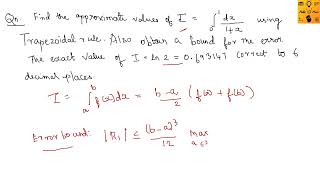 Qn. Find the approximate values of I = ∫₀¹ dx/(1+x) using
Trapezoidal rule. Also obtain a bound for the error.
The exact value of I = ln 2 = 0.693147 correct to 6
decimal places.
I = ∫ₐᵇ f(x)dx = (b-a)/2 (f(a) + f(b))
Error bound: |R₁| ≤ (b-a)³/12 max